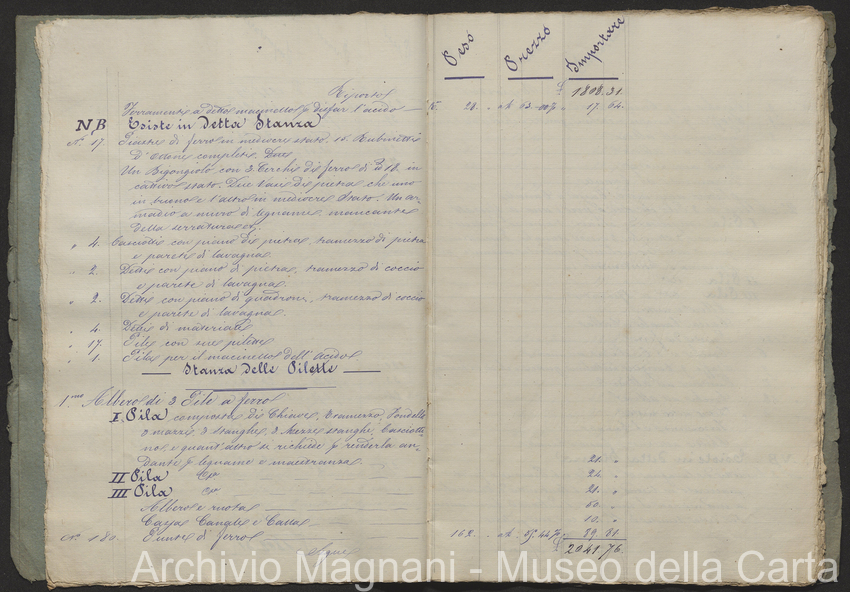 Peso Prezzo Importare
Riporto £ 1808. 31.
Ferramenti a detto macinello p disfar l'acido K. 28. " A 63.00% " 17. 64.
NB Esiste in Detta Stanza
N. 17. Piastre di ferro in mediocre stato. 15. Rubinetti
D'Ottone completi. Due
Un Bigongiolo con 3 Cerchi di ferro di in
cattivo stato. Due Vasi di pietra che uno
in buono e l'altro in mediocre Stato. Un ar-
madio a muro di legname mancante
della serratura
" 4. Casciotti con piano di pietra, tramezzo di pietra
e parete di lavagna.
" 2. Detti con piano di pietra, tramezzo di coccio
e parete di lavagna.
" 2. Detti con piano di quadroni, tramezzo di coccio
e parete di lavagna.
" 4. Detti di materiale
" 17. Pile con sue pilette
" 1. Pila per il macinello dell'acido
Stanza Delle Pilette
1.mo Albero di 3 Pile a ferro
I. Pila composta di Chiave, Tramezzo, Fondello
3 marre, 3 stanghe, 2 Mezze stanghe, Casciotti-
no, e quant'altro si richiede p renderla an-
dante p legname e maestranza. 21. "
II Pila 24. "
III Pila 21. "
Albero e ruota 60. "
Caya Canale e Calla 10. "
N. 180. Punte di ferro 162. " A 29. 81.
Segue £ 2041. 76
Archivio Magnani - Museo della Carta